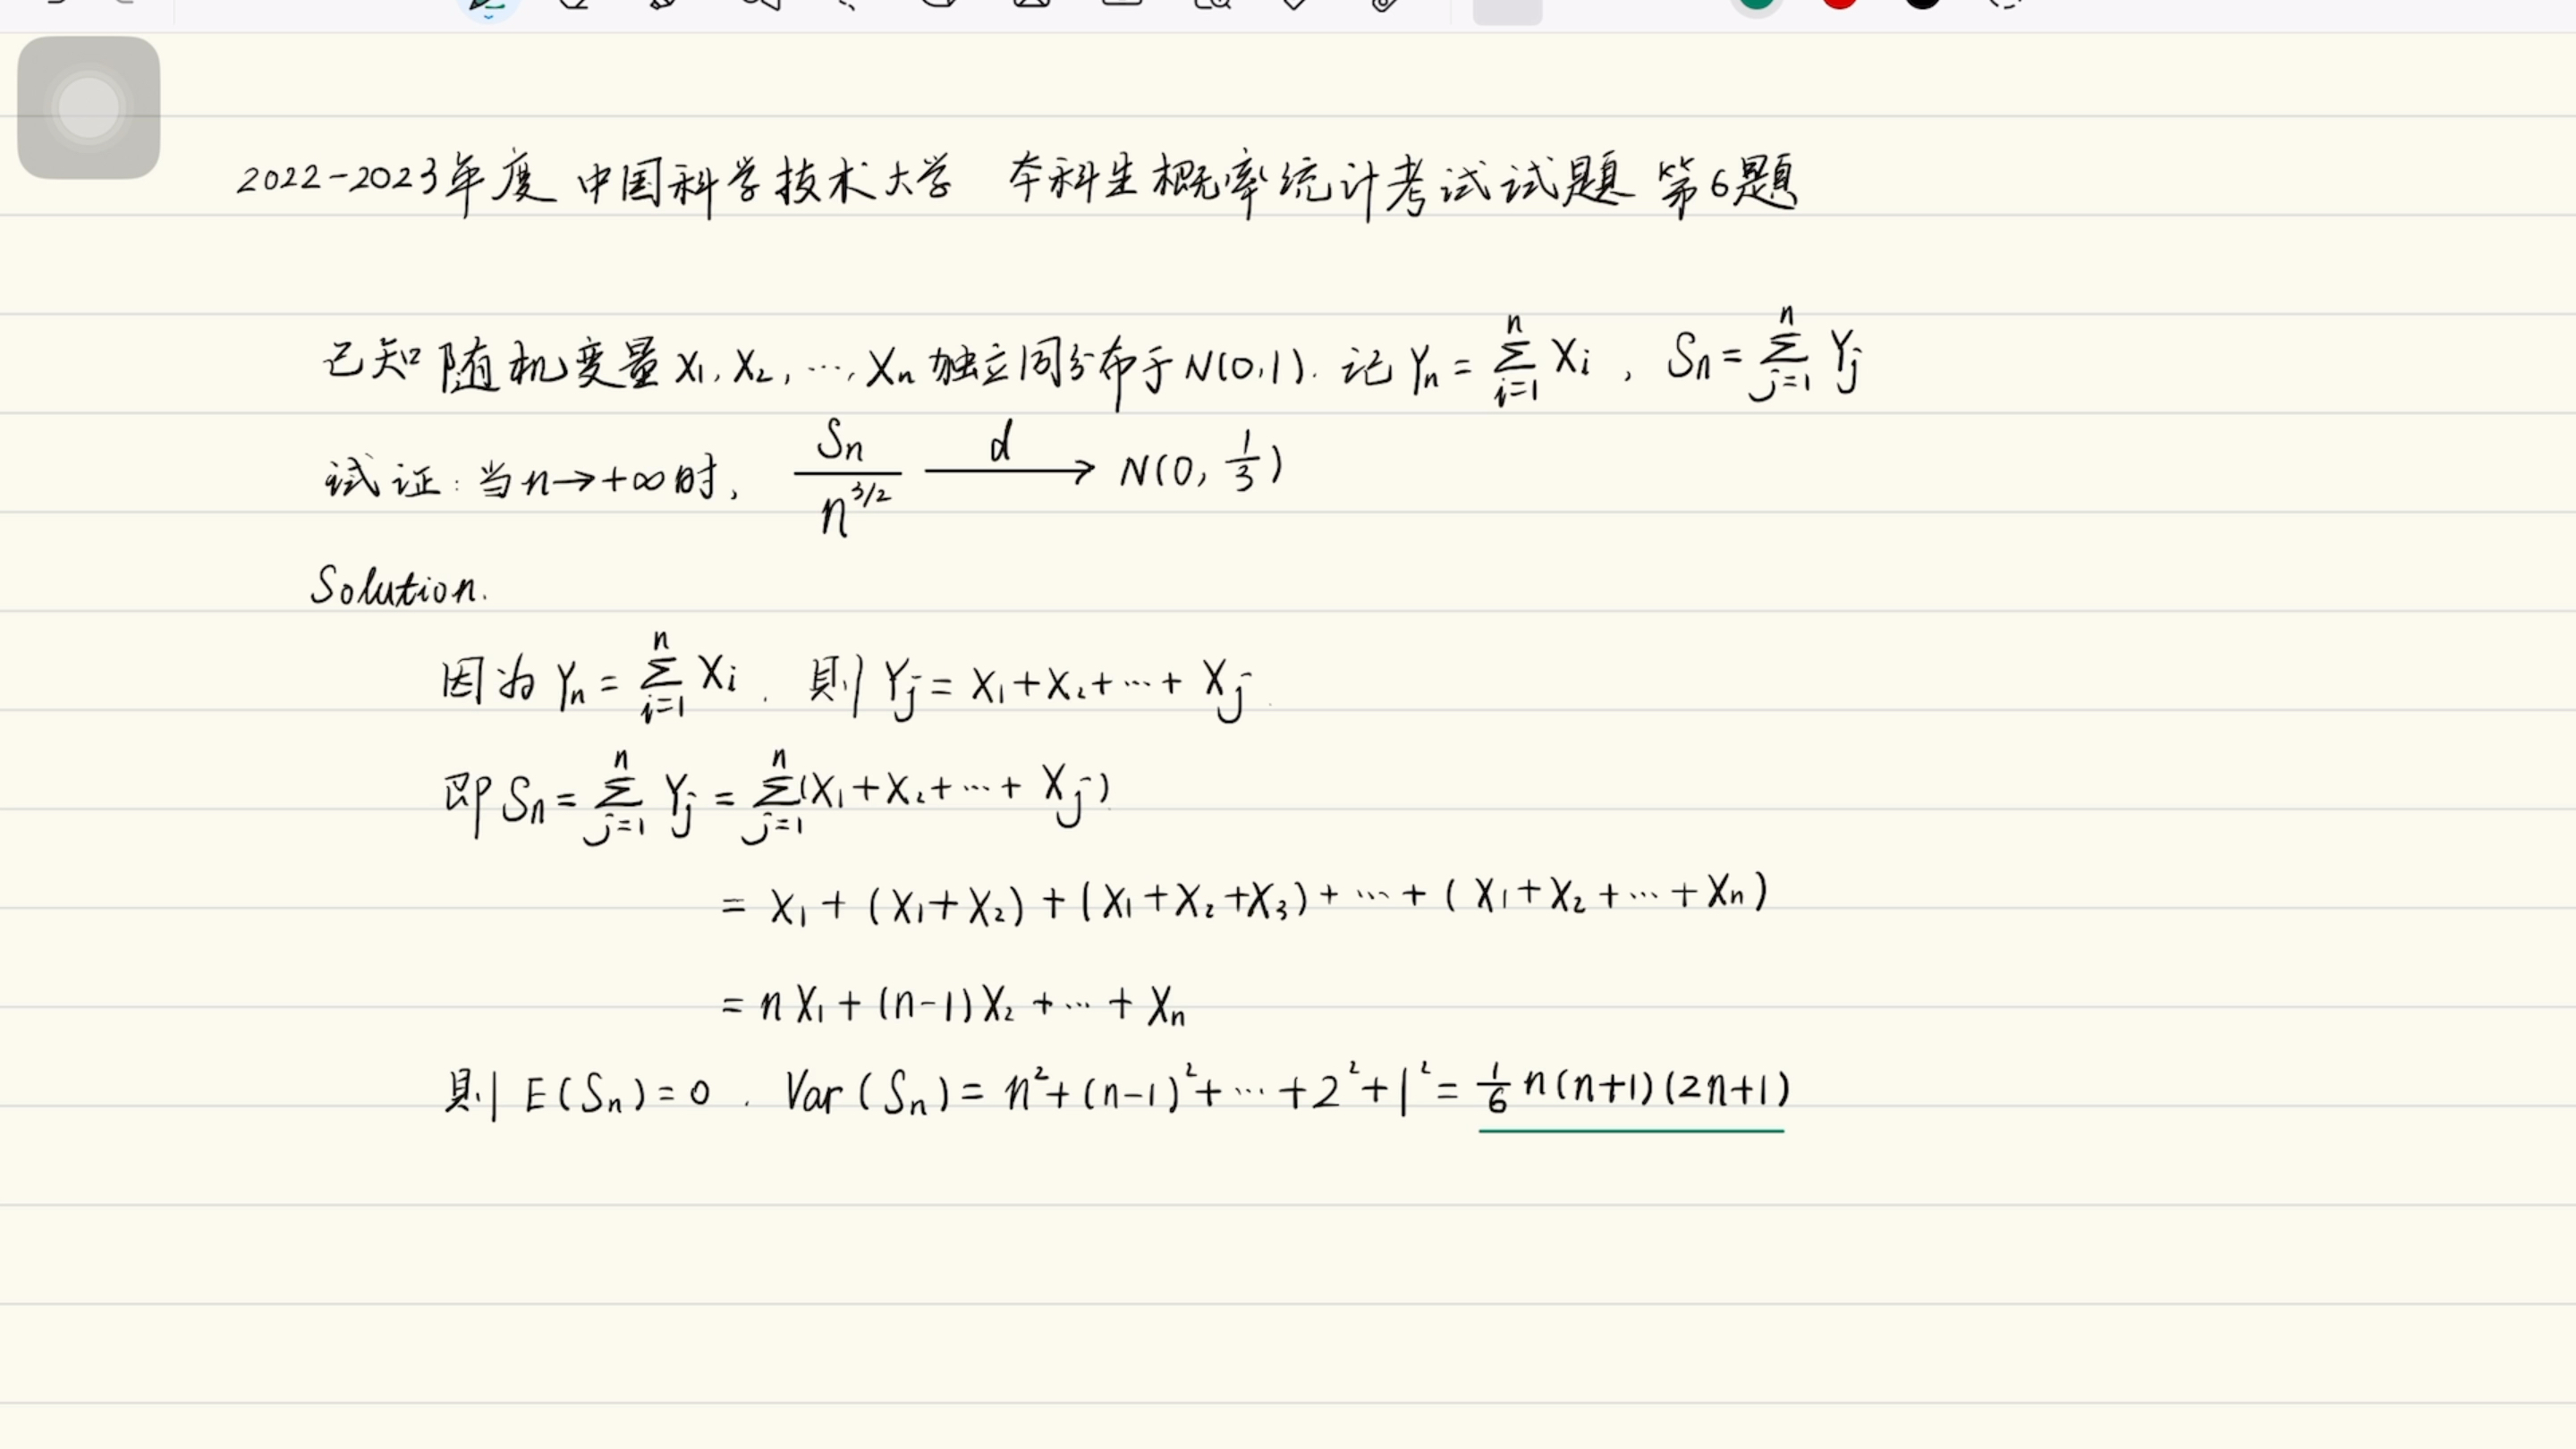 2022-2023年度 中国科学技术大学 本科生概率统计考试试题 第6题
已知随机变量 X₁, X₂, ⋯, Xₙ 独立同分布于 N(0,1). 记 Yₙ = ∑_{i=1}^{n} Xᵢ , Sₙ = ∑_{j=1}^{n} Yⱼ
试证: 当 n→+∞ 时, Sₙ / n^{3/2} —d→ N(0, 1/3)
Solution.
因为 Yₙ = ∑_{i=1}^{n} Xᵢ . 则 Yⱼ = X₁+X₂+⋯+Xⱼ.
即 Sₙ = ∑_{j=1}^{n} Yⱼ = ∑_{j=1}^{n} (X₁+X₂+⋯+Xⱼ)
= X₁ + (X₁+X₂) + (X₁+X₂+X₃) + ⋯ + (X₁+X₂+⋯+Xₙ)
= nX₁ + (n-1)X₂ + ⋯ + Xₙ
则 E(Sₙ) = 0 . Var(Sₙ) = n²+(n-1)²+⋯+2²+1² = 1/6 n(n+1)(2n+1)